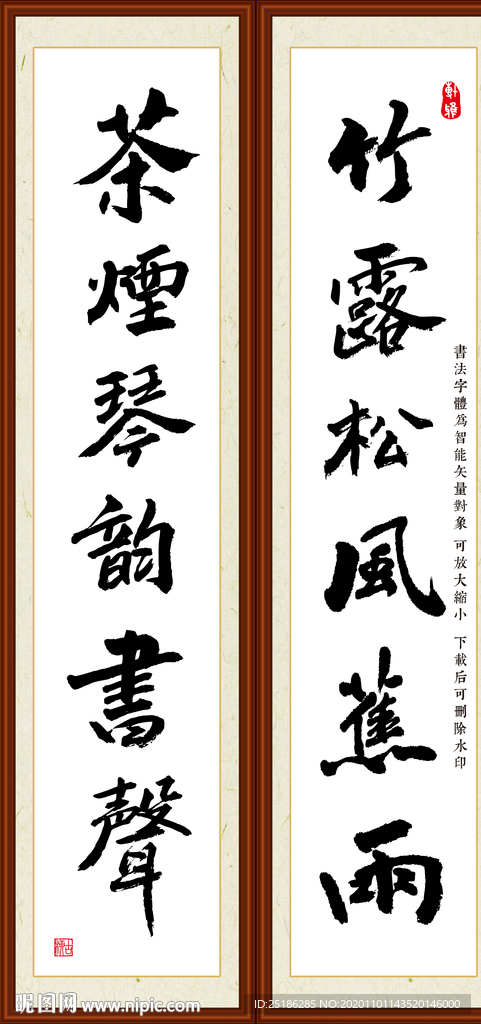 竹露松風蕉雨
茶煙琴韵書聲
書法字體為智能矢量對象 可放大縮小 下載后可刪除水印
昵图网 www.nipic.com
ID:25186285 NO:20201101143520146000